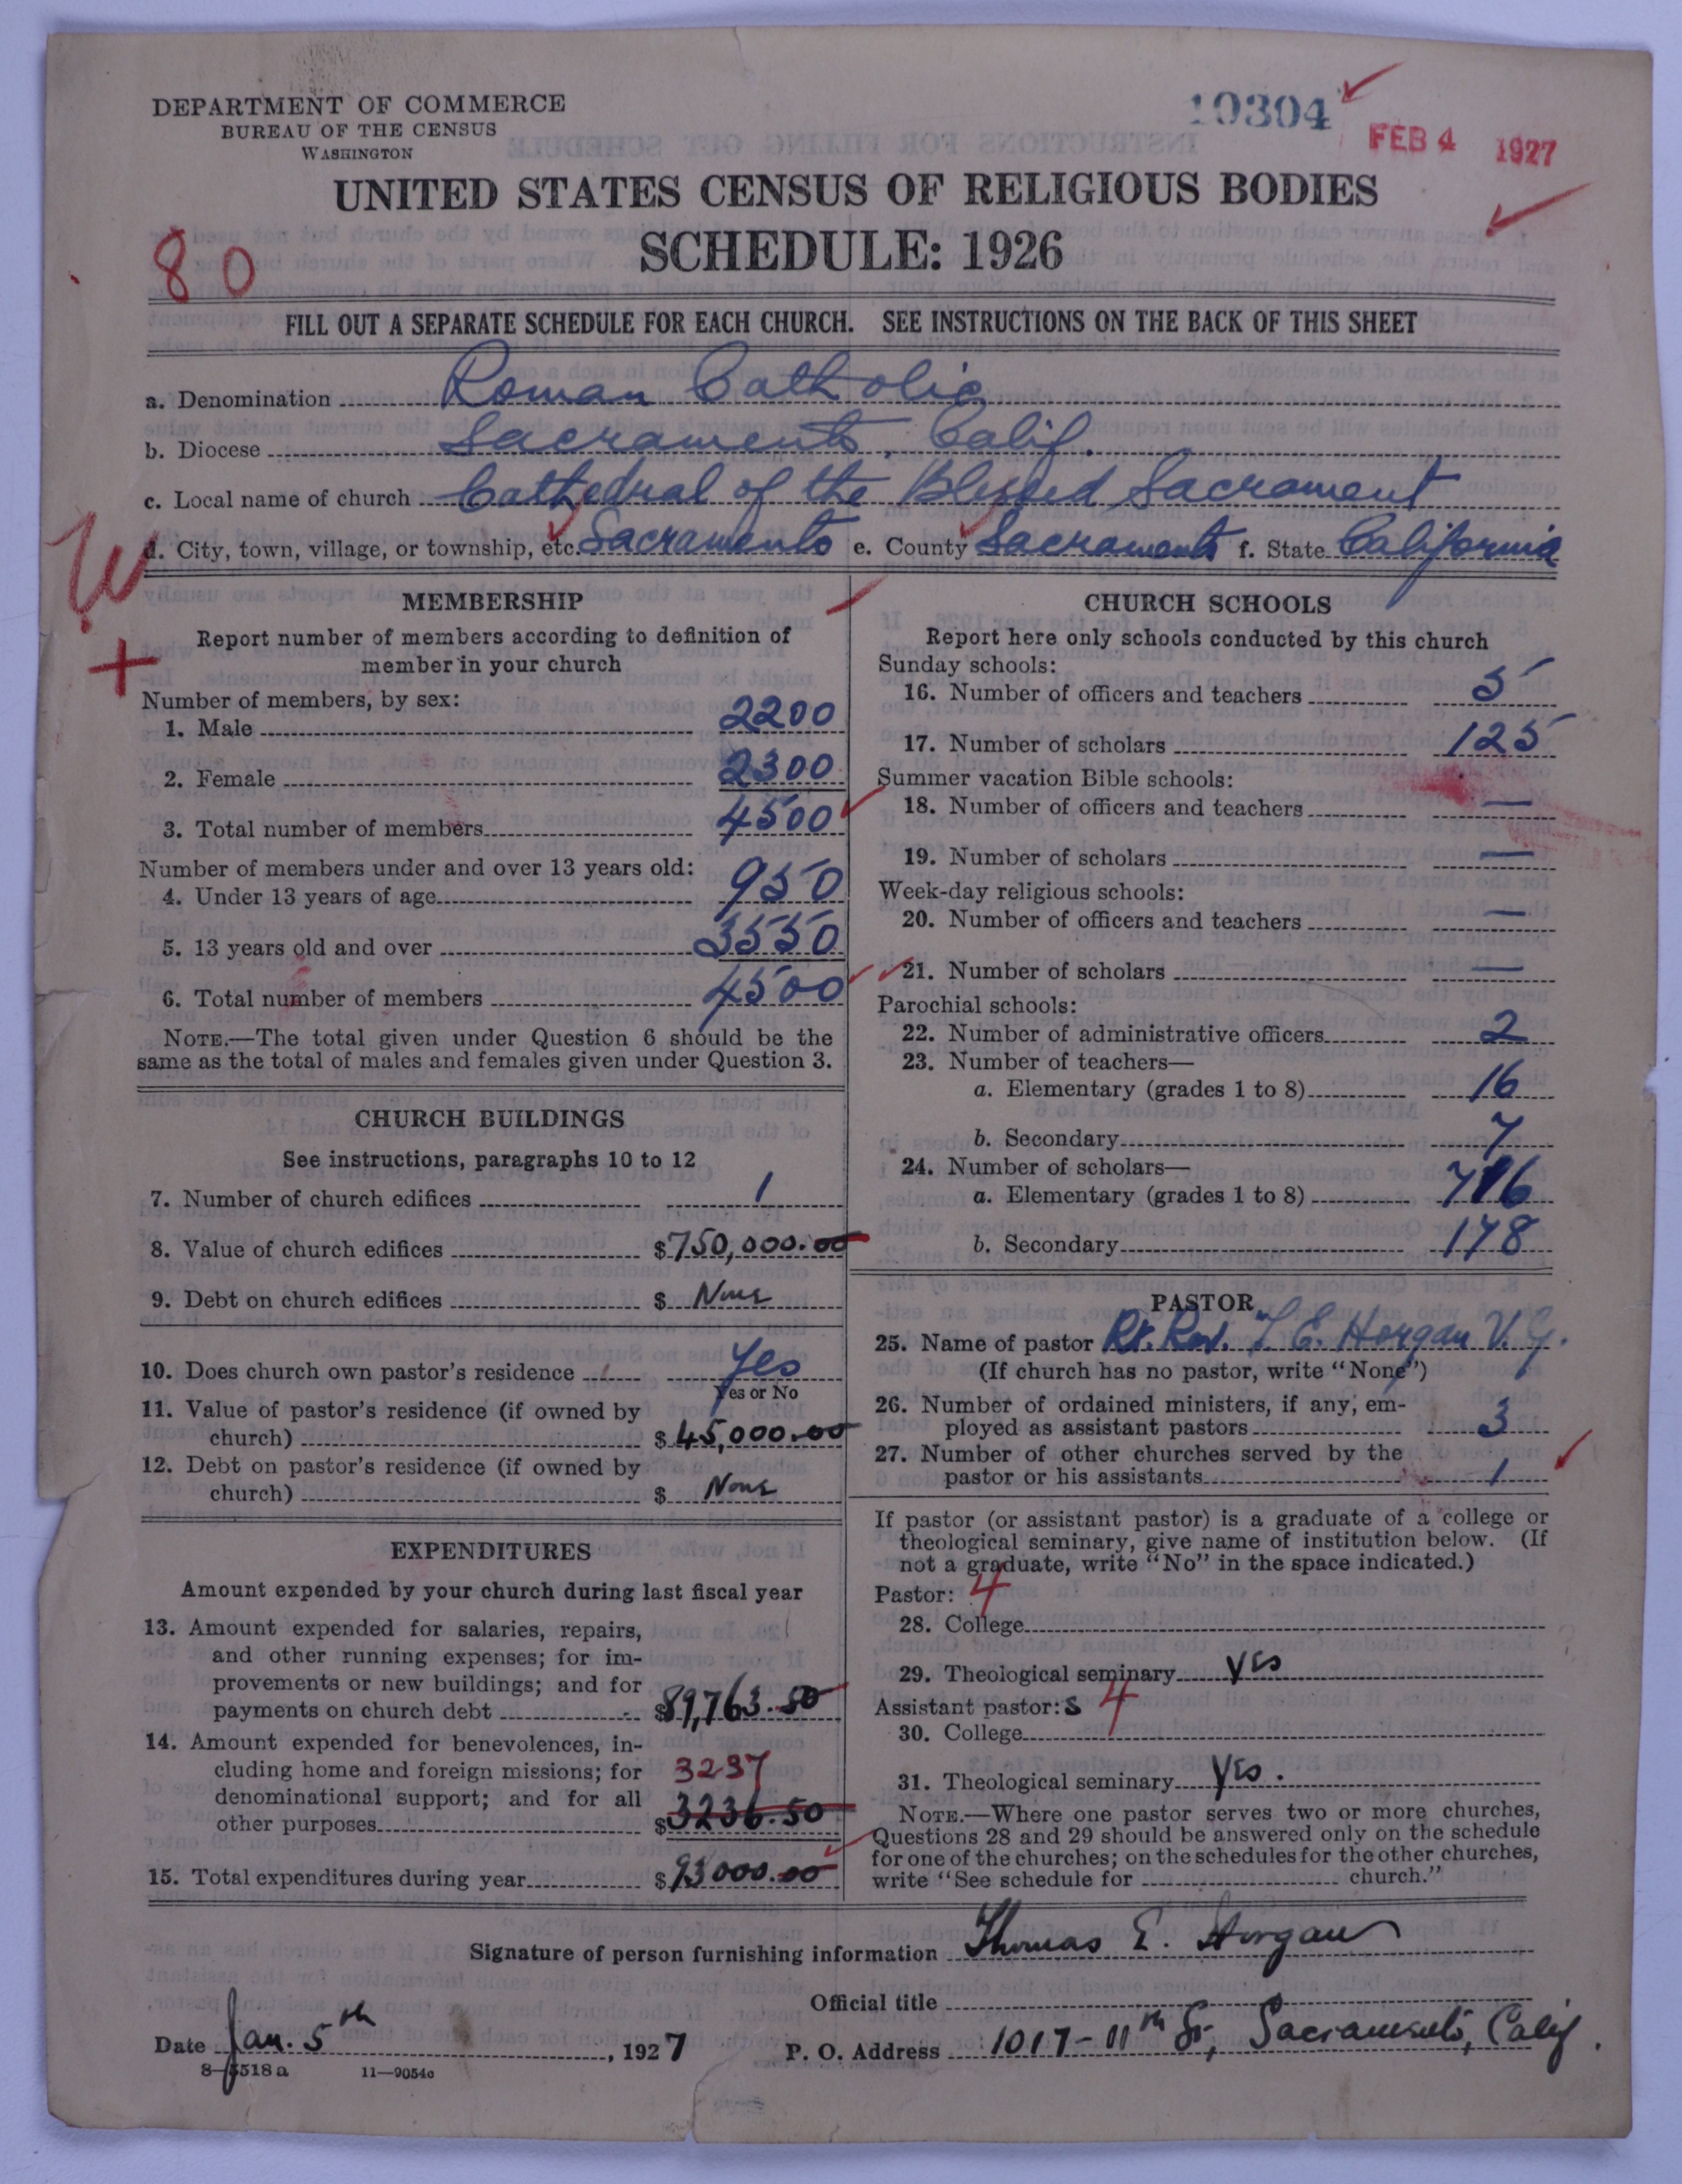 DEPARTMENT OF COMMERCE
BUREAU OF THE CENSUS
WASHINGTON
10304
FEB 4 1927
UNITED STATES CENSUS OF RELIGIOUS BODIES
SCHEDULE: 1926
80
FILL OUT A SEPARATE SCHEDULE FOR EACH CHURCH. SEE INSTRUCTIONS ON THE BACK OF THIS SHEET
a. Denomination Roman Catholic
b. Diocese Sacramento, Calif.
c. Local name of church Cathedral of the Blessed Sacrament
d. City, town, village, or township, etc. Sacramento e. County Sacramento f. State California
W
+
MEMBERSHIP
Report number of members according to definition of
member in your church
Number of members, by sex:
1. Male 2200
2. Female 2300
3. Total number of members 4500
Number of members under and over 13 years old:
4. Under 13 years of age 950
5. 13 years old and over 3550
6. Total number of members 4500
NOTE.—The total given under Question 6 should be the
same as the total of males and females given under Question 3.
CHURCH BUILDINGS
See instructions, paragraphs 10 to 12
7. Number of church edifices 1
8. Value of church edifices $750,000.00
9. Debt on church edifices $ None
10. Does church own pastor's residence Yes
Yes or No
11. Value of pastor's residence (if owned by
church) $45,000.00
12. Debt on pastor's residence (if owned by
church) $ None
EXPENDITURES
Amount expended by your church during last fiscal year
13. Amount expended for salaries, repairs,
and other running expenses; for im-
provements or new buildings; and for
payments on church debt $89,763.50
14. Amount expended for benevolences, in-
cluding home and foreign missions; for 3237
denominational support; and for all
other purposes $3236.50
15. Total expenditures during year $93000.00
CHURCH SCHOOLS
Report here only schools conducted by this church
Sunday schools:
16. Number of officers and teachers 5
17. Number of scholars 125
Summer vacation Bible schools:
18. Number of officers and teachers —
19. Number of scholars —
Week-day religious schools:
20. Number of officers and teachers —
21. Number of scholars —
Parochial schools:
22. Number of administrative officers 2
23. Number of teachers—
a. Elementary (grades 1 to 8) 16
b. Secondary 7
24. Number of scholars—
a. Elementary (grades 1 to 8) 716
b. Secondary 178
PASTOR
25. Name of pastor Rt. Rev. T. E. Horgan V. G.
(If church has no pastor, write "None")
26. Number of ordained ministers, if any, em-
ployed as assistant pastors 3
27. Number of other churches served by the
pastor or his assistants 1
If pastor (or assistant pastor) is a graduate of a college or
theological seminary, give name of institution below. (If
not a graduate, write "No" in the space indicated.)
Pastor: 4
28. College
29. Theological seminary Yes
Assistant pastor: s 4
30. College
31. Theological seminary Yes.
NOTE.—Where one pastor serves two or more churches,
Questions 28 and 29 should be answered only on the schedule
for one of the churches; on the schedules for the other churches,
write "See schedule for church."
Signature of person furnishing information Thomas E. Horgan
Official title
Date Jan. 5th, 1927 P. O. Address 1017-11th St, Sacramento, Calif.
8-5518a 11—9054c